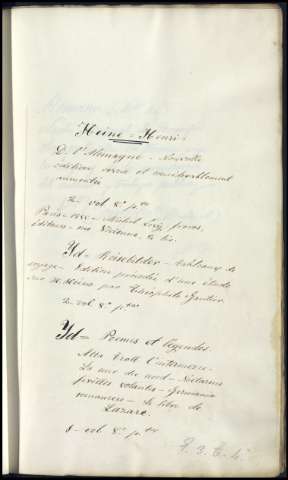 Heine = Henri =
De l'Allemagne - Nouvelle
édition revue et considérablement
augmentée
2 = vol 8º
Paris - 1855 - Michel Lévy frères
éditeurs - rue Vivienne, 2 bis.
Yd = Reisebilder - tableaux de
voyage - Edition précédée d'une étude
sur H. Heine par Théophile Gautier.
2 - vol 8º
Yd = Poemes et légendes.
Atta Troll L'intermezzo.
La mer du nord - Nocturnes
feuilles volantes - Germania
romancero - Le livre de
Lazare.
vol 8º